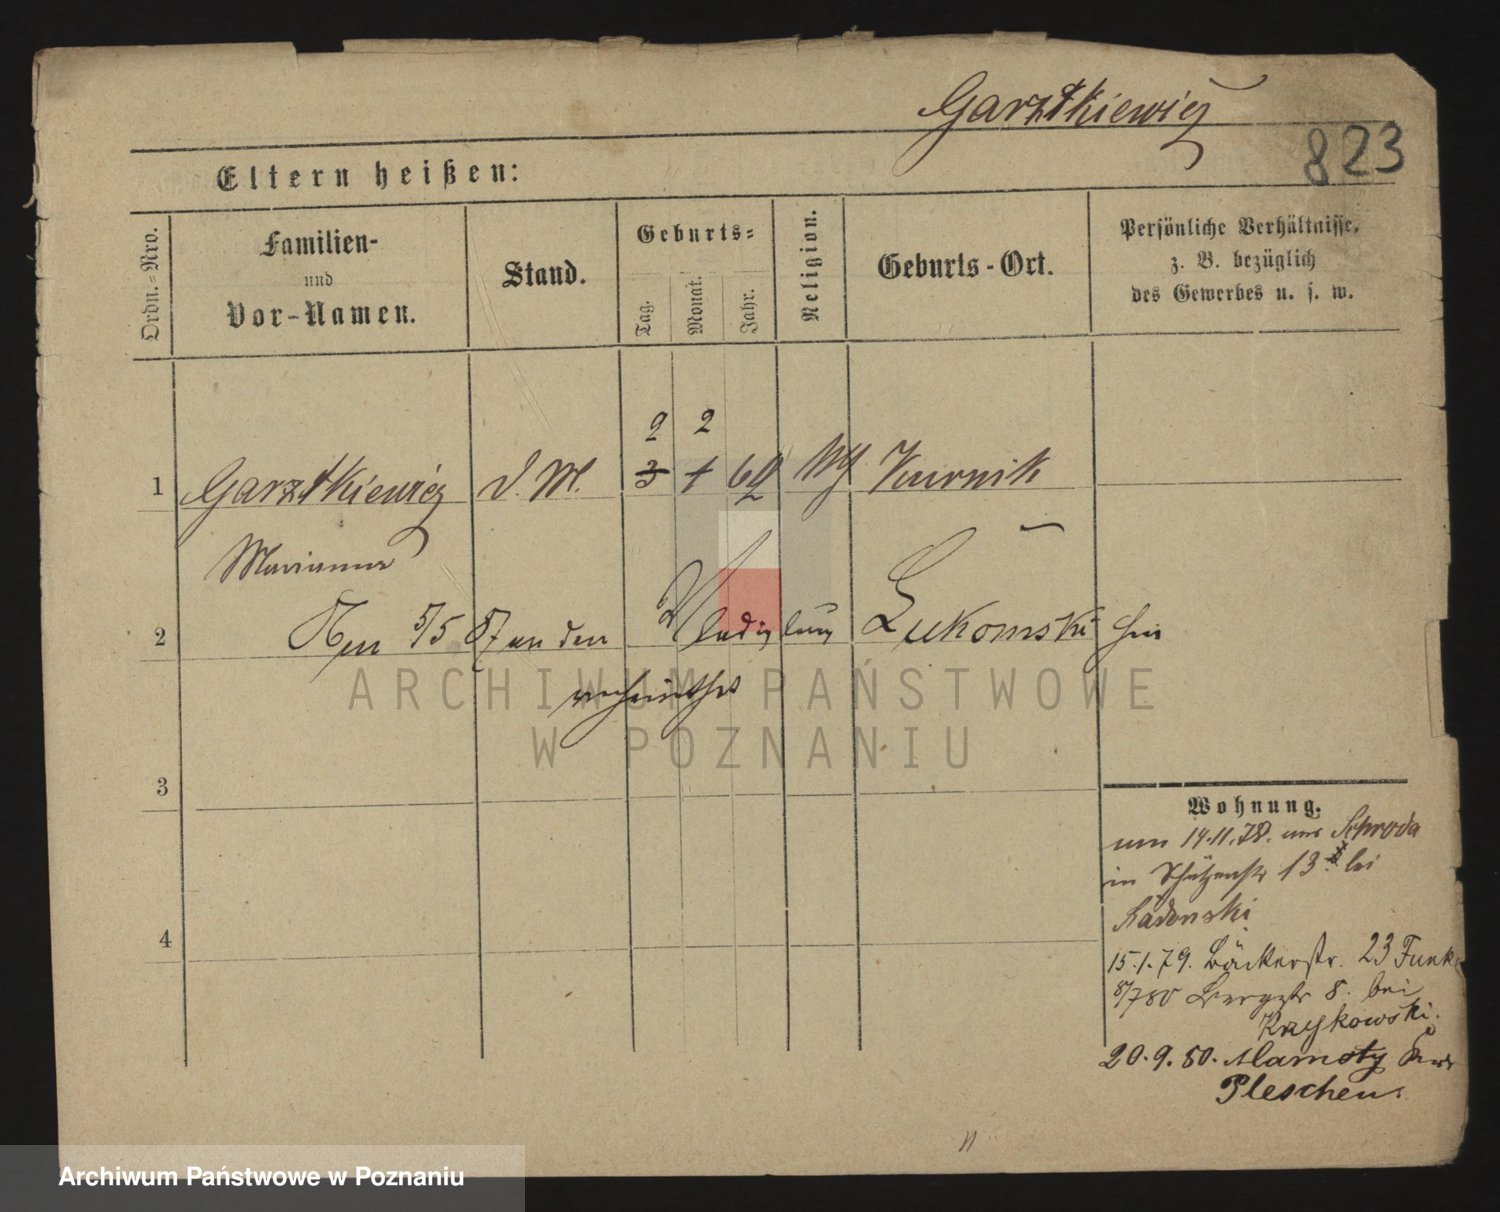 Garztkiewicz
823
Eltern heißen:
Ordn.-Nro.
Familien-
und
Vor-Namen.
Stand.
Geburts-
Tag.
Monat.
Jahr.
Religion.
Geburts-Ort.
Persönliche Verhältnisse,
z. B. bezüglich
des Gewerbes u. s. w.
2 2
1 Garztkiewicz d. M. 3 1 62 Kurnik
Marianna
2 5/5 87 an den Lukomski hier
verheirathet
ARCHIWUM PAŃSTWOWE
W POZNANIU
3
4
Wohnung.
um 14.11.78. aus Schroda
in Schützenstr 13 bei
Radonski
15.1.79. Bäckerstr. 23 Funk
8/7 80 Bergstr 8. bei
Krzykowski.
20.9.80.
Pleschen.
Archiwum Państwowe w Poznaniu